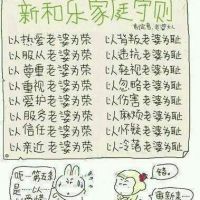 新和乐家庭守则
以热爱老婆为荣 以背叛老婆为耻
以服从老婆为荣 以违抗老婆为耻
以尊重老婆为荣 以轻视老婆为耻
以重视老婆为荣 以忽略老婆为耻
以爱护老婆为荣 以伤害老婆为耻
以服务老婆为荣 以麻烦老婆为耻
以信任老婆为荣 以怀疑老婆为耻
以亲近老婆为荣 以冷落老婆为耻
呃…第五条
是…以…
错。
重新来…